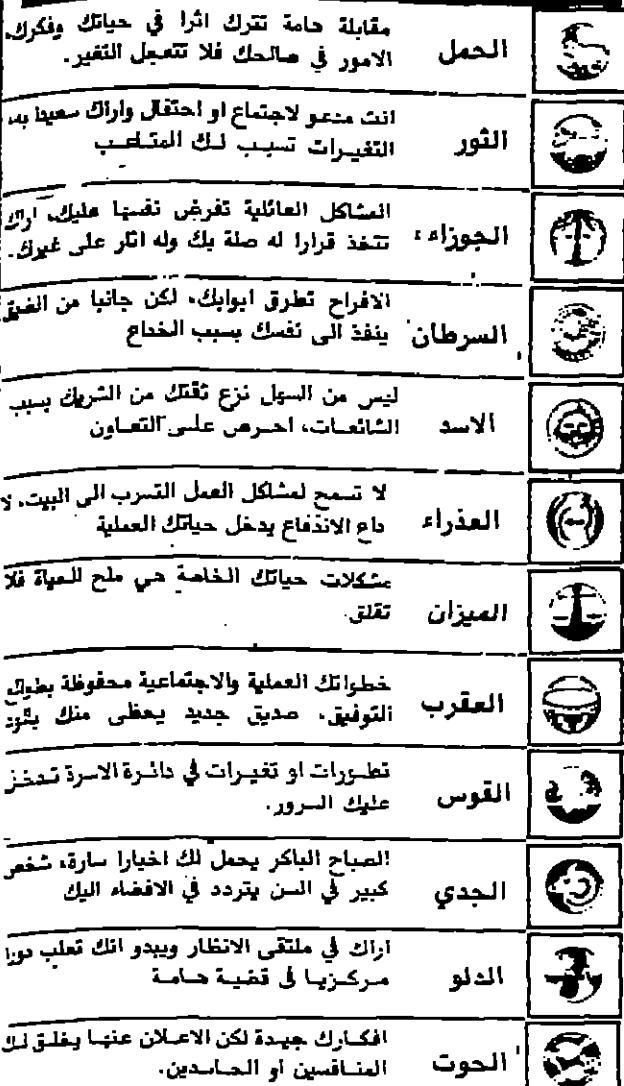 الحمل
مقابلة هامة تترك اثرا في حياتك وفكرك،
الامور في صالحك فلا تتعجل التغير.
الثور
انت مدعو لاجتماع او احتفال واراك سعيدا به،
التغيرات تسبب لك المتاعب
الجوزاء :
المشاكل العائلية تفرض نفسها عليك، اراك
تتخذ قرارا له صلة بك وله اثار على غيرك.
السرطان
الافراح تطرق ابوابك، لكن جانبا من الضيق
ينفذ الى نفسك بسبب الخداع
الاسد
ليس من السهل نزع ثقتك من الشريك بسبب
الشائعات، احرص على التعاون
العذراء
لا تسمح لمشاكل العمل التسرب الى البيت، لا
داع الاندفاع يدخل حياتك العملية
الميزان
مشكلات حياتك الخاصة هي ملح للحياة فلا
تقلق.
العقرب
خطواتك العملية والاجتماعية محفوظة
التوفيق، صديق جديد يحظى منك
القوس
تطورات او تغيرات في دائرة الاسرة تدخل
عليك السرور.
الجدي
الصباح الباكر يحمل لك اخبارا سارة، شخص
كبير في السن يتردد في الافضاء اليك
الدلو
اراك في ملتقى الانظار ويبدو انك تعلب دورا
مركزيا في قضية هامة
الحوت
افكارك جيدة لكن الاعلان عنها يخلق لك
المنافسين او الحاسدين.